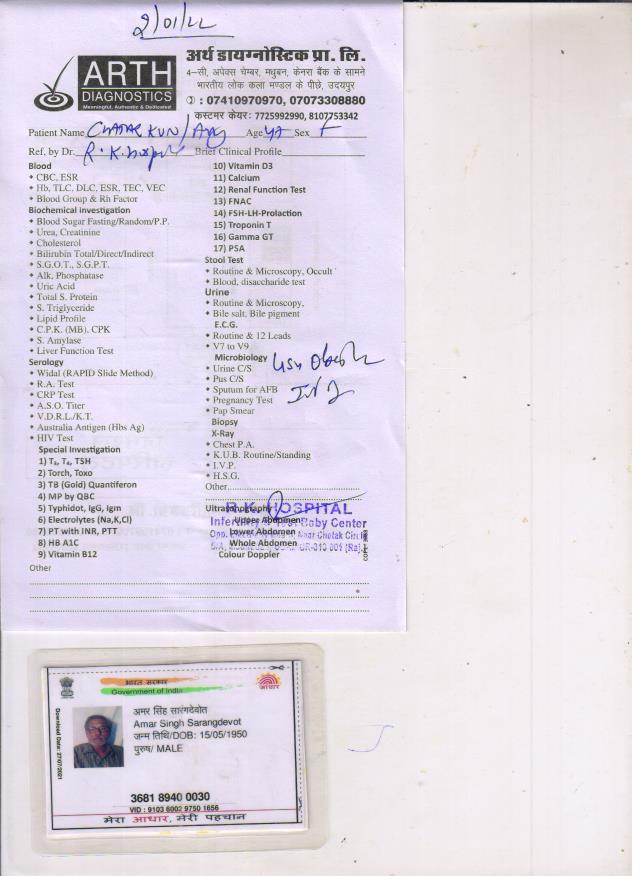 2/01/22
ARTH
DIAGNOSTICS
Meaningful, Authentic & Dedicated
अर्थ डायग्नोस्टिक प्रा. लि.
4-सी, अपेक्स चेम्बर, मधुबन, केनरा बैंक के सामने
भारतीय लोक कला मण्डल के पीछे, उदयपुर
: 07410970970, 07073308880
कस्टमर केयर: 7725992990, 8107753342
Patient Name Age Sex F
Ref, by Dr. R.K. Brief Clinical Profile
Blood
• CBC, ESR
• Hb, TLC, DLC, ESR, TEC, VEC
• Blood Group & Rh Factor
Biochemical Investigation
• Blood Sugar Fasting/Random/P.P.
• Urea, Creatinine
• Cholesterol
• Bilirubin Total/Direct/Indirect
• S.G.O.T., S.G.P.T.
• Alk, Phosphatase
• Uric Acid
• Total S. Protein
• S. Triglyceride
• Lipid Profile
• C.P.K. (MB), CPK
• S. Amylase
• Liver Function Test
Serology
• Widal (RAPID Slide Method)
• R.A. Test
• CRP Test
• A.S.O. Titer
• V.D.R.L./K.T.
• Australia Antigen (Hbs Ag)
• HIV Test
Special Investigation
1) T₃, T₄, TSH
2) Torch, Toxo
3) TB (Gold) Quantiferon
4) MP by QBC
5) Typhidot, IgG, Igm
6) Electrolytes (Na,K,Cl)
7) PT with INR, PTT
8) HB A1C
9) Vitamin B12
Other
10) Vitamin D3
11) Calcium
12) Renal Function Test
13) FNAC
14) FSH-LH-Prolaction
15) Troponin T
16) Gamma GT
17) PSA
Stool Test
• Routine & Microscopy, Occult
• Blood, disaccharide test
Urine
• Routine & Microscopy,
• Bile salt, Bile pigment
E.C.G.
• Routine & 12 Leads
• V7 to V9
Microbiology
• Urine C/S
• Pus C/S
• Sputum for AFB
• Pregnancy Test
• Pap Smear
Biopsy
X-Ray
• Chest P.A.
• K.U.B. Routine/Standing
• I.V.P.
• H.S.G.
Other
Ultrasonography
Upper Abdomen
Lower Abdomen
Whole Abdomen
Colour Doppler
R.K. HOSPITAL
Infertility & Test Baby Center
Near Chetak Circle
भारत सरकार
Government of India
आधार
Download Date: 27/07/2021
अमर सिंह सारंगदेवोत
Amar Singh Sarangdevot
जन्म तिथि/DOB: 15/05/1950
पुरुष/ MALE
3681 8940 0030
VID : 9103 6002 9750 1656
मेरा आधार, मेरी पहचान